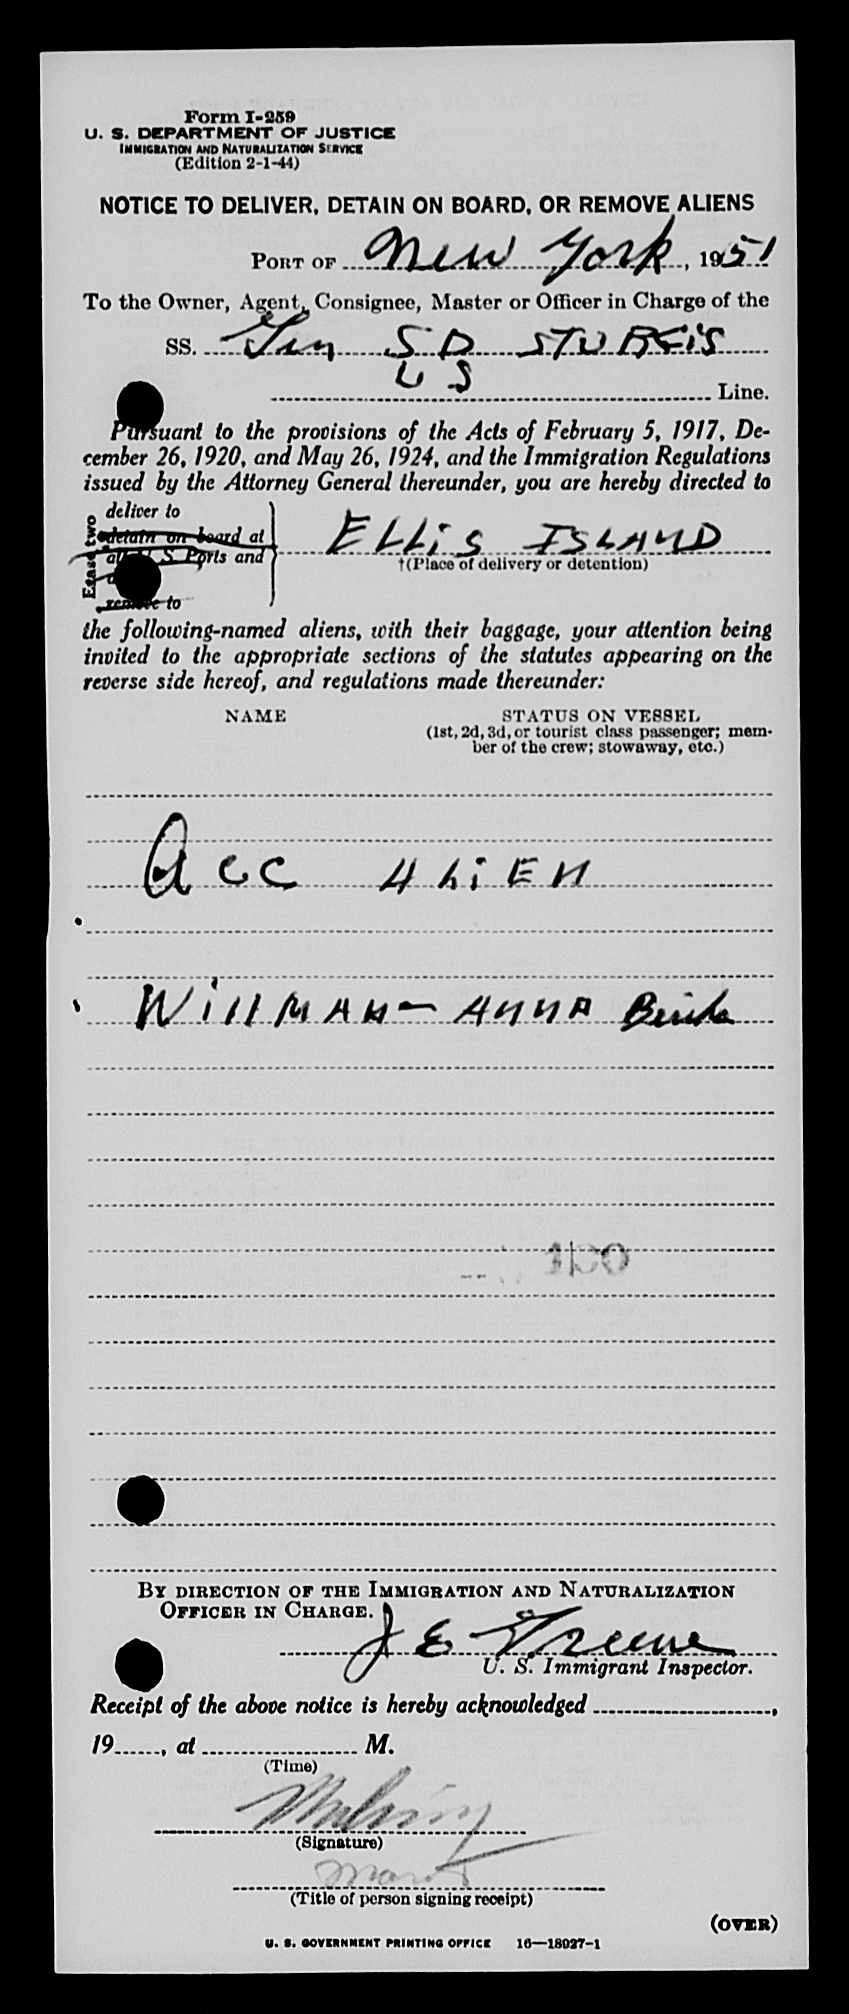 Form I-259
U. S. DEPARTMENT OF JUSTICE
IMMIGRATION AND NATURALIZATION SERVICE
(Edition 2-1-44)
NOTICE TO DELIVER, DETAIN ON BOARD, OR REMOVE ALIENS
PORT OF New York, 1951
To the Owner, Agent, Consignee, Master or Officer in Charge of the
SS. Gen S D STURGIS
U S Line.
Pursuant to the provisions of the Acts of February 5, 1917, De-
cember 26, 1920, and May 26, 1924, and the Immigration Regulations
issued by the Attorney General thereunder, you are hereby directed to
Erase two
deliver to
detain on board at
all U. S. Ports and
remove to
ELLIS ISLAND
†(Place of delivery or detention)
the following-named aliens, with their baggage, your attention being
invited to the appropriate sections of the statutes appearing on the
reverse side hereof, and regulations made thereunder:
NAME STATUS ON VESSEL
(1st, 2d, 3d, or tourist class passenger; mem-
ber of the crew; stowaway, etc.)
Acc ALIEN
WillMAN - ANNA
BY DIRECTION OF THE IMMIGRATION AND NATURALIZATION
OFFICER IN CHARGE.
J E Greene
U. S. Immigrant Inspector.
Receipt of the above notice is hereby acknowledged ,
19 , at M.
(Time)
(Signature)
(Title of person signing receipt)
(OVER)
U. S. GOVERNMENT PRINTING OFFICE 16—18027-1